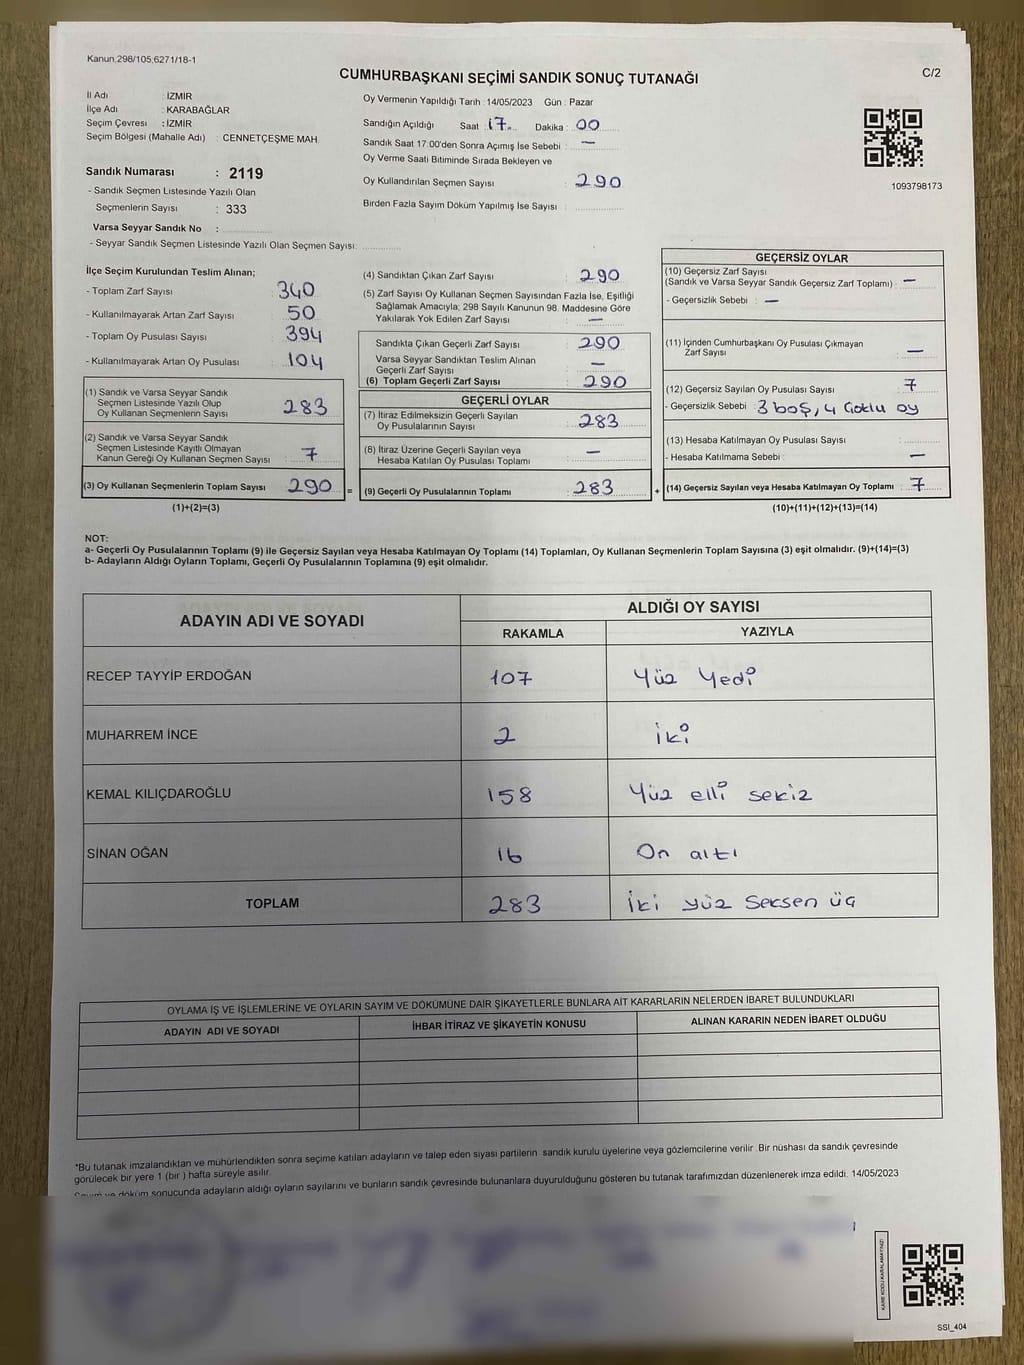 Kanun,298/105,6271/18-1
CUMHURBAŞKANI SEÇİMİ SANDIK SONUÇ TUTANAĞI
C/2
İl Adı : İZMİR
İlçe Adı : KARABAĞLAR
Seçim Çevresi : İZMİR
Seçim Bölgesi (Mahalle Adı) : CENNETÇEŞME MAH.
Sandık Numarası : 2119
- Sandık Seçmen Listesinde Yazılı Olan
Seçmenlerin Sayısı : 333
Varsa Seyyar Sandık No :
- Seyyar Sandık Seçmen Listesinde Yazılı Olan Seçmen Sayısı:
Oy Vermenin Yapıldığı Tarih : 14/05/2023 Gün : Pazar
Sandığın Açıldığı Saat : 17 Dakika : 00
Sandık Saat 17:00'den Sonra Açımış İse Sebebi : —
Oy Verme Saati Bitiminde Sırada Bekleyen ve
Oy Kullandırılan Seçmen Sayısı : 290
Birden Fazla Sayım Döküm Yapılmış İse Sayısı
1093798173
İlçe Seçim Kurulundan Teslim Alınan;
- Toplam Zarf Sayısı : 340
- Kullanılmayarak Artan Zarf Sayısı : 50
- Toplam Oy Pusulası Sayısı : 394
- Kullanılmayarak Artan Oy Pusulası : 104
(1) Sandık ve Varsa Seyyar Sandık
Seçmen Listesinde Yazılı Olup
Oy Kullanan Seçmenlerin Sayısı : 283
(2) Sandık ve Varsa Seyyar Sandık
Seçmen Listesinde Kayıtlı Olmayan
Kanun Gereği Oy Kullanan Seçmen Sayısı : 7
(3) Oy Kullanan Seçmenlerin Toplam Sayısı : 290 =
(1)+(2)=(3)
(4) Sandıktan Çıkan Zarf Sayısı : 290
(5) Zarf Sayısı Oy Kullanan Seçmen Sayısından Fazla İse, Eşitliği
Sağlamak Amacıyla; 298 Sayılı Kanunun 98. Maddesine Göre
Yakılarak Yok Edilen Zarf Sayısı : —
Sandıkta Çıkan Geçerli Zarf Sayısı : 290
Varsa Seyyar Sandıktan Teslim Alınan
Geçerli Zarf Sayısı : —
(6) Toplam Geçerli Zarf Sayısı : 290
GEÇERLİ OYLAR
(7) İtiraz Edilmeksizin Geçerli Sayılan
Oy Pusulalarının Sayısı : 283
(8) İtiraz Üzerine Geçerli Sayılan veya
Hesaba Katılan Oy Pusulası Toplamı : —
(9) Geçerli Oy Pusulalarının Toplamı : 283 +
GEÇERSİZ OYLAR
(10) Geçersiz Zarf Sayısı
(Sandık ve Varsa Seyyar Sandık Geçersiz Zarf Toplamı) : —
- Geçersizlik Sebebi : —
(11) İçinden Cumhurbaşkanı Oy Pusulası Çıkmayan
Zarf Sayısı : —
(12) Geçersiz Sayılan Oy Pusulası Sayısı : 7
- Geçersizlik Sebebi : 3 boş, 4 Çoklu oy
(13) Hesaba Katılmayan Oy Pusulası Sayısı :
- Hesaba Katılmama Sebebi : —
(14) Geçersiz Sayılan veya Hesaba Katılmayan Oy Toplamı : 7
(10)+(11)+(12)+(13)=(14)
NOT:
a- Geçerli Oy Pusulalarının Toplamı (9) ile Geçersiz Sayılan veya Hesaba Katılmayan Oy Toplamı (14) Toplamları, Oy Kullanan Seçmenlerin Toplam Sayısına (3) eşit olmalıdır. (9)+(14)=(3)
b- Adayların Aldığı Oyların Toplamı, Geçerli Oy Pusulalarının Toplamına (9) eşit olmalıdır.
ADAYIN ADI VE SOYADI
ALDIĞI OY SAYISI
RAKAMLA YAZIYLA
RECEP TAYYİP ERDOĞAN 107 Yüz Yedi
MUHARREM İNCE 2 İki
KEMAL KILIÇDAROĞLU 158 Yüz elli sekiz
SİNAN OĞAN 16 On altı
TOPLAM 283 İki yüz Seksen üç
OYLAMA İŞ VE İŞLEMLERİNE VE OYLARIN SAYIM VE DÖKÜMÜNE DAİR ŞİKAYETLERLE BUNLARA AİT KARARLARIN NELERDEN İBARET BULUNDUKLARI
ADAYIN ADI VE SOYADI İHBAR İTİRAZ VE ŞİKAYETİN KONUSU ALINAN KARARIN NEDEN İBARET OLDUĞU
*Bu tutanak imzalandıktan ve mühürlendikten sonra seçime katılan adayların ve talep eden siyasi partilerin sandık kurulu üyelerine veya gözlemcilerine verilir. Bir nüshası da sandık çevresinde
görülecek bir yere 1 (bir ) hafta süreyle asılır.
Sayım ve döküm sonucunda adayların aldığı oyların sayılarını ve bunların sandık çevresinde bulunanlara duyurulduğunu gösteren bu tutanak tarafımızdan düzenlenerek imza edildi. 14/05/2023
KARE KODU KARALAMAYINIZ!
SSI_404